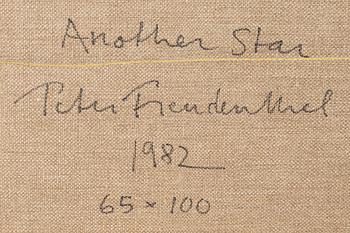 Another Star
Peter Freudenthal
1982
65 × 100